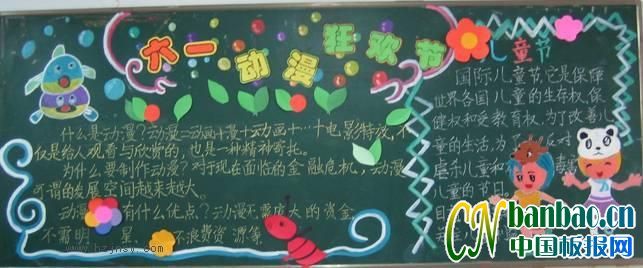 六一动漫狂欢节
什么是动漫?动漫=动画+漫+动画+…十电影特效,不
仅是给人观看与欣赏的,也是一种精神寄托。
为什么要制作动漫?对于现在面临的金融危机,动漫
可谓的发展空间越来越大。
动漫 有什么优点?动漫不需庞大的资金,
不需明 星 不浪费资源等
儿童节
国际儿童节,它是保障
世界各国儿童的生存权、保
健权和受教育权,为了改善儿
童的生活,为了 反对
虐杀儿童和
儿童的节日
CN banbao.cn
中国板报网